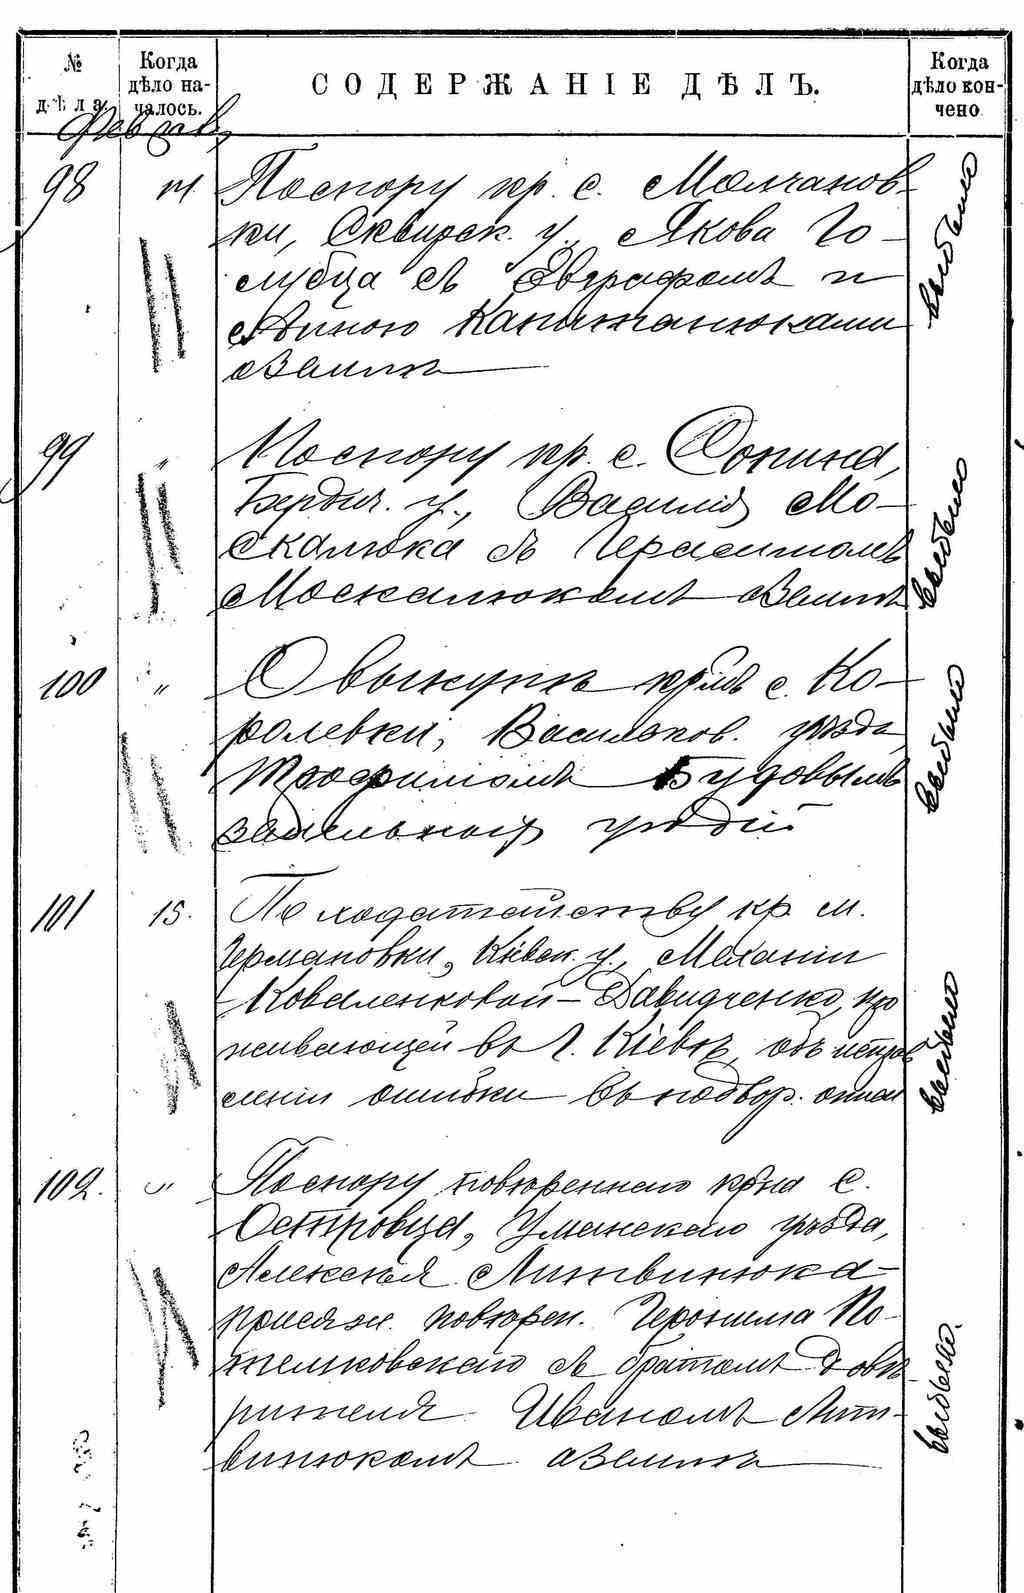 № дѣла
Когда дѣло началось.
СОДЕРЖАНІЕ ДѢЛЪ.
Когда дѣло кончено
98
14
По спору кр. с. Молчанов-
ки, Сквирск. у., Якова Го-
лубца съ Евграфомъ и
Анною Капитанюками
о землѣ
выбыло
99
"
По спору кр. с. Сопина,
Бердич. у., Василія Мо-
скалюка съ Герасимомъ
Москалюкомъ о землѣ
выбыло
100
"
О выкупѣ кр-мъ с. Ко-
ролевки, Васильков. уѣзда
Трофимомъ Будовымъ
усадьб
выбыло
101
15.
По ходатайству кр. м.
Германовки, Кіевск. у., Меланіи
Коваленковой-Давидченко, про
живающей въ г. Кіевѣ, объ исправ
леніи ошибки въ подвор. описи
выбыло
102.
"
По спору повѣреннаго кр-на с.
Островца, Уманскаго уѣзда,
Алексѣя Литвинюка-
присяж. повѣрен. Іеронима По-
скаго съ братомъ довѣ-
рителя Иваномъ Лит-
винюкомъ о землѣ
выбыло.